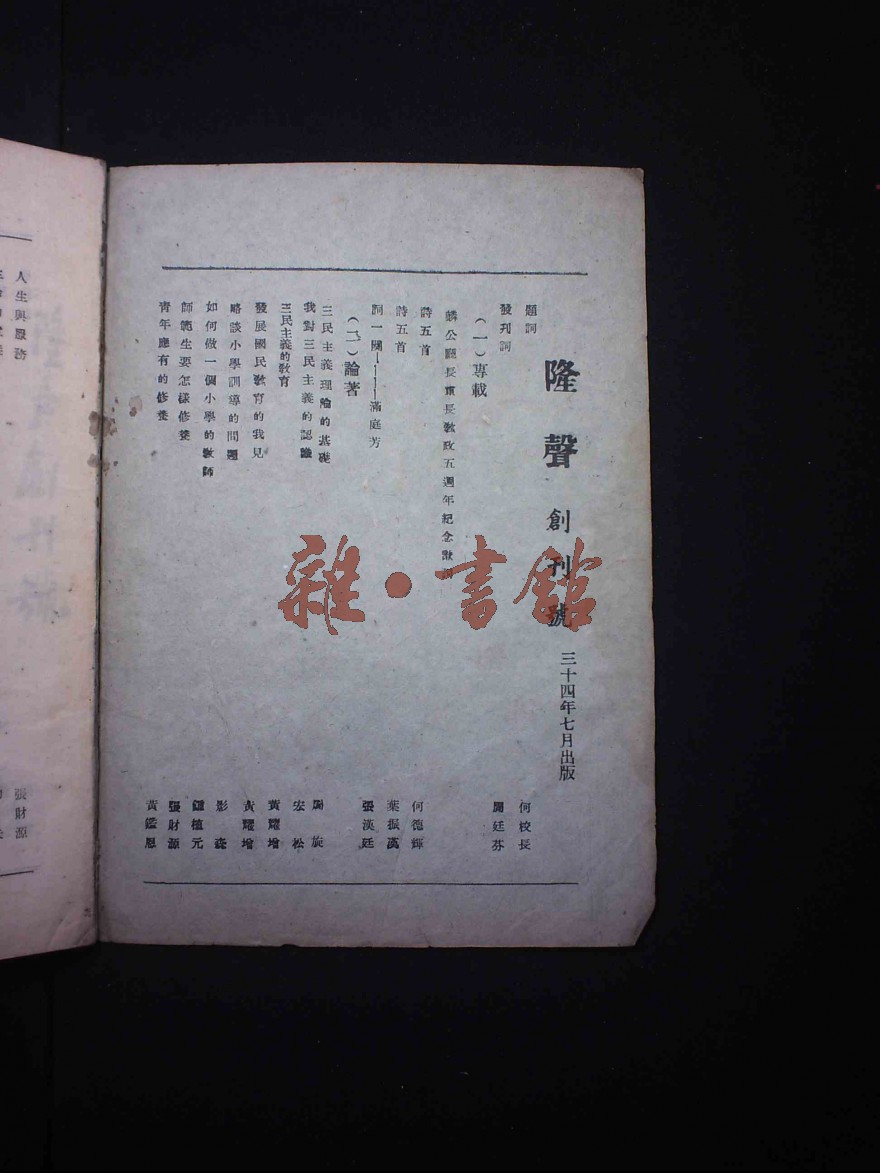 隆聲 創刊號 三十四年七月出版
題詞 何校長
發刊詞 周廷芬
（一）專載
麟公廳長重長教政五週年紀念獻詞
詩五首 何德輝
詩五首 葉振漢
詞一闋———滿庭芳 張漢廷
（二）論著
三民主義理論的基礎 周旋
我對三民主義的認識 宏松
三民主義的教育 黃耀增
發展國民教育的我見 黃耀增
略談小學訓導的問題 影森
如何做一個小學的教師 鍾植元
師範生要怎樣修養 張財源
青年應有的修養 黃鑑恩
人生與服務 張財源
雜·書館